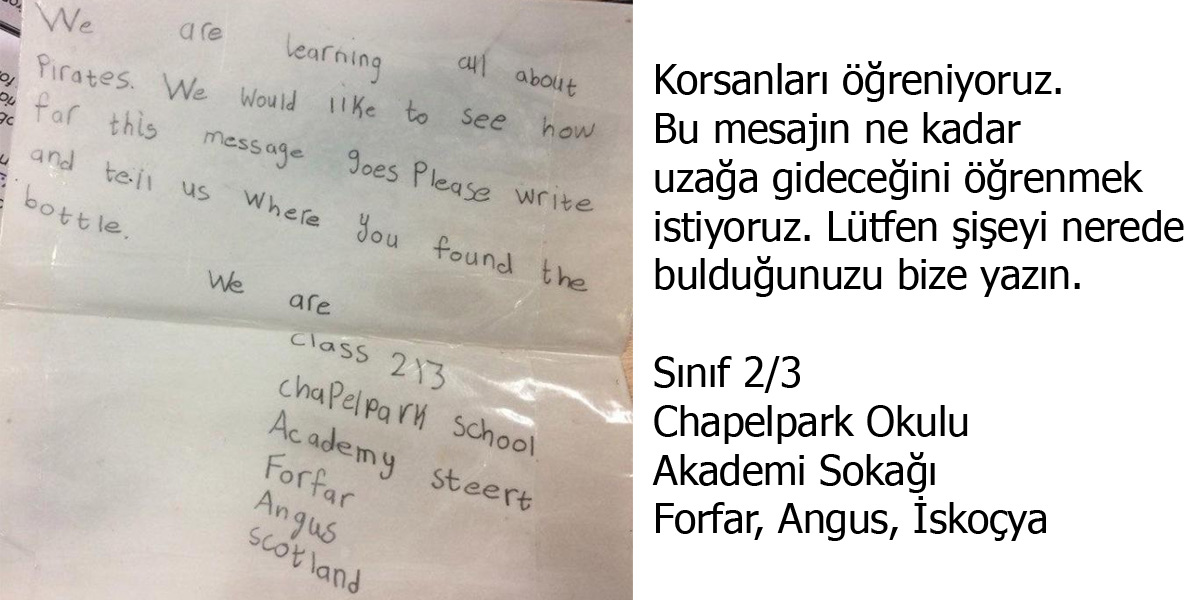 We are learning all about
Pirates. We would like to see how
far this message goes Please write
and tell us where you found the
bottle.
We are
class 2\3
chapelpark school
Academy steert
Forfar
Angus
scotland
Korsanları öğreniyoruz.
Bu mesajın ne kadar
uzağa gideceğini öğrenmek
istiyoruz. Lütfen şişeyi nerede
bulduğunuzu bize yazın.
Sınıf 2/3
Chapelpark Okulu
Akademi Sokağı
Forfar, Angus, İskoçya